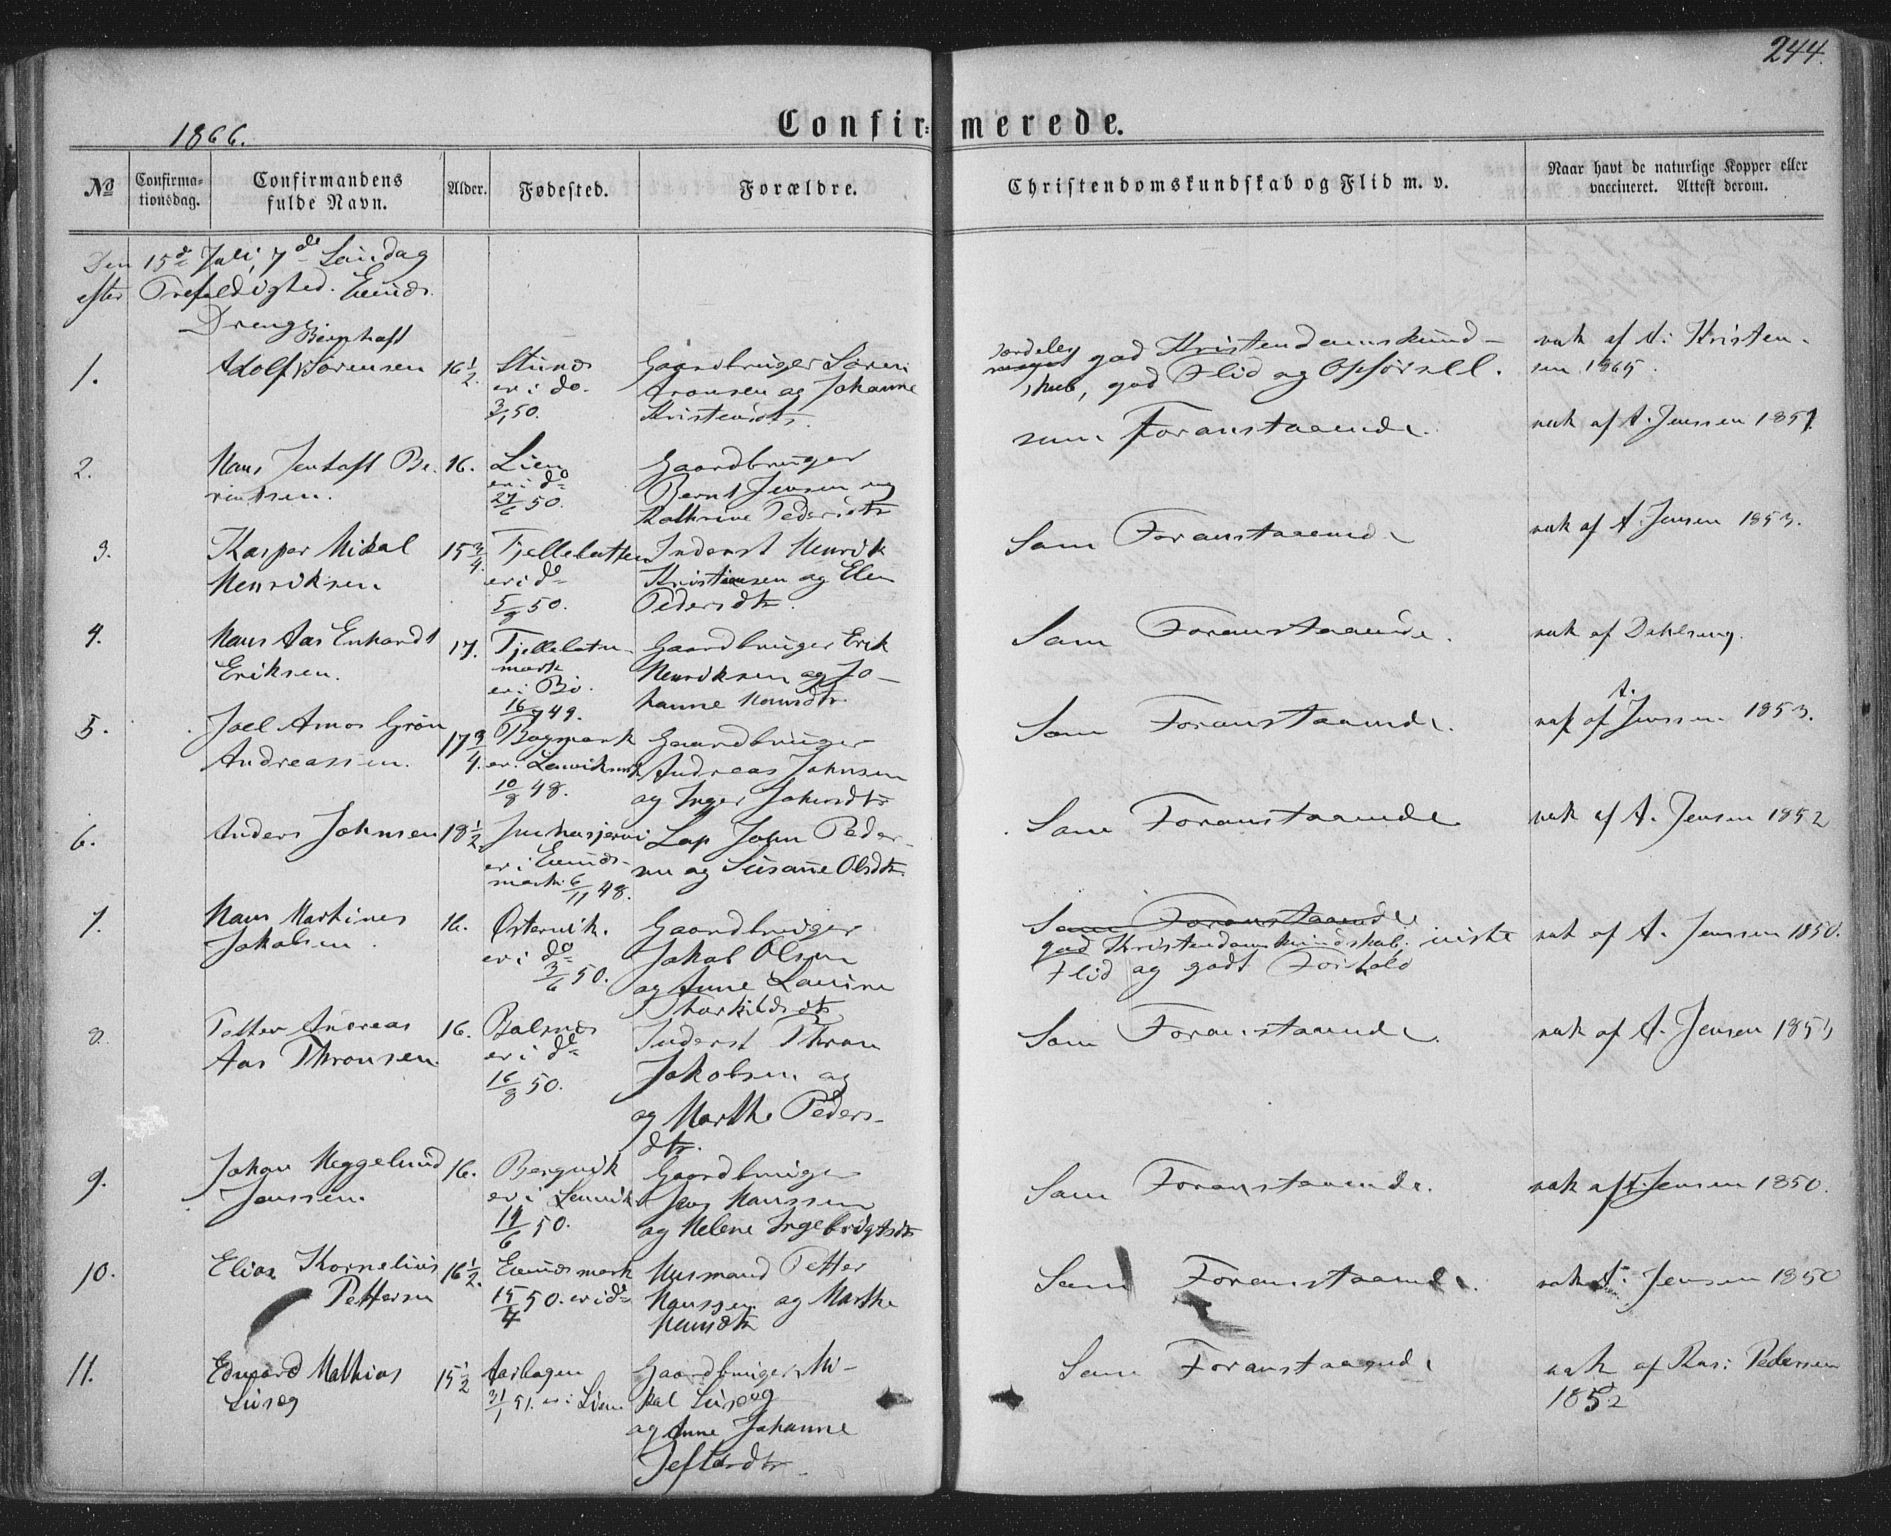 244.
1866.
Confir= merede.
No
Confirma-
tionsdag.
Confirmandens
fulde Navn.
Alder.
Fødested.
Forældre.
Christendomskundskab og Flid m. v.
Naar havt de naturlige Kopper eller
vaccineret. Attest derom.
Den 15de Juli, 7de Søndag
efter Trefoldighed. Evenes.
Drenge
1.
Adolf Sørensen
16 1/2.
er i do.
3/1 50.
Gaardbruger Søren
Aronsen og Johanne
Kristensdtr.
god Kristendomskund-
skab, god Flid og Opførsel.
vak af A. Kristen-
sen 1865.
2.
Hans Jentoft Be-
rentsen.
16.
Lien
er i do
27/6 50.
Gaardbruger
Bernt Jensen og
Kathrine Pedersdtr
som Foranstaaende.
vak af A. Jenssen 1851
3.
Kasper Mikal
Henriksen
15 3/4.
Fjellebotten
er i do
5/8 50.
Inderst Henrik
Kristiansen og Elen
Pedersdtr.
Som Foranstaaende
vak af A. Jensen 1853.
4.
Hans Aas Enhardt
Eriksen.
17.
mark
er i Bø.
16/7 49.
Gaardbruger Erik
Henriksen og Jo-
hanne Hansdtr.
Som Foranstaaende.
vak af Dahlseng.
5.
Joel Amos Grøn
Andreassen.
17 3/4.
Bogmark
10/8 48.
Gaardbruger
Andreas Johnsen
og Inger Johnsdtr
Som Foranstaaende.
vak af A. Jenssen 1853.
6.
Anders Johnsen
18 1/2
er i Evenes-
mark 6/11 48.
Lap John Peder-
sen og Susanne Olsdtr.
Som Foranstaaende
vak af A. Jensen 1852
7.
Hans Martines
Jakobsen.
16.
Østervik.
er i do
3/6 50.
Gaardbruger
Jakob Olsen
og Anne Laurine
Thorkildsdtr
Som Foranstaaende
god Kristendomskundskab,
Flid og godt Forhold
vak af A. Jenssen 1850.
8.
Petter Andreas
Aas Thronsen.
16.
Balsnes
er i do
16/8 50.
Inderst Thron
Jakobsen og
og Marthe Peders-
dtr.
Som Foranstaaende.
vak af A. Jensen 1851
9.
Johan Heggelund
Jenssen.
16.
Bergvik
er i Lenvik
14/6 50.
Gaardbruger
Jens Hanssen
og Helene Ingebrigtsdtr
Som Foranstaaende.
vak af A. Jensen 1850.
10.
Elias Kornelius
Pettersen
16 1/2.
Evenesmark
15/4 50. er i do
Husmand Petter
Hanssen og Marthe
Hansdtr
Som Foranstaaende.
vak A. Jensen 1850
11.
Edvard Mathias
15 1/2
31/1 51. er i Lien
Gaardbruger Mi-
kal
og Anne Johanne
Som Foranstaaende
vak af Ras: Pedersen
1852